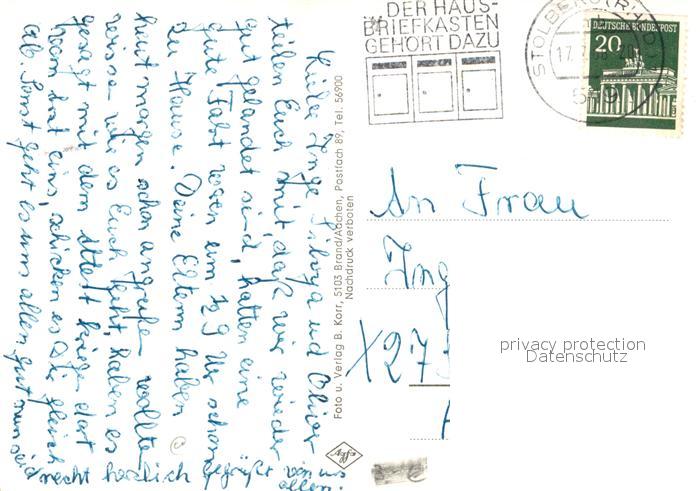 DER HAUS-
BRIEFKASTEN
GEHÖRT DAZU
STOLBERG (RHLD)
17.7.68
519
DEUTSCHE BUNDESPOST
20
Liebe Inge Silvya und Oliver
teilen Euch mit, daß wir wieder
gut gelandet sind, hatten eine
gute Fahrt waren um 12 9 Uhr schon
zu Hause. Deine Eltern haben
heut morgen schon angrufen wollte
wisse wie es Euch geht, haben es
gesagt mit dem Attest kriegen dort
vom hat eins, schicken es Dir gleich
ab. Sonst geht es uns allen gut nun seid
recht herzlich gegrüßt von uns
allen.
Foto u. Verlag B. Korr, 5103 Brand/Aachen, Postfach 89, Tel. 56900
Nachdruck verboten
Agfa
An Frau
Ing
X27
privacy protection
Datenschutz